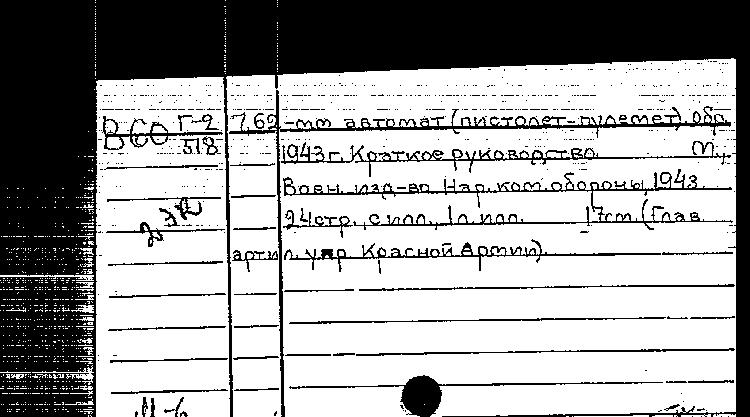 ВСО Г-2/518 7,62-мм автомат (пистолет-пулемет) обр.
1943 г. Краткое руководство. М.,
Воен. изд-во Нар. ком. обороны, 1943.
24 стр., с илл., 1 л. илл. 17 см. (Глав.
артил. упр. Красной Армии).